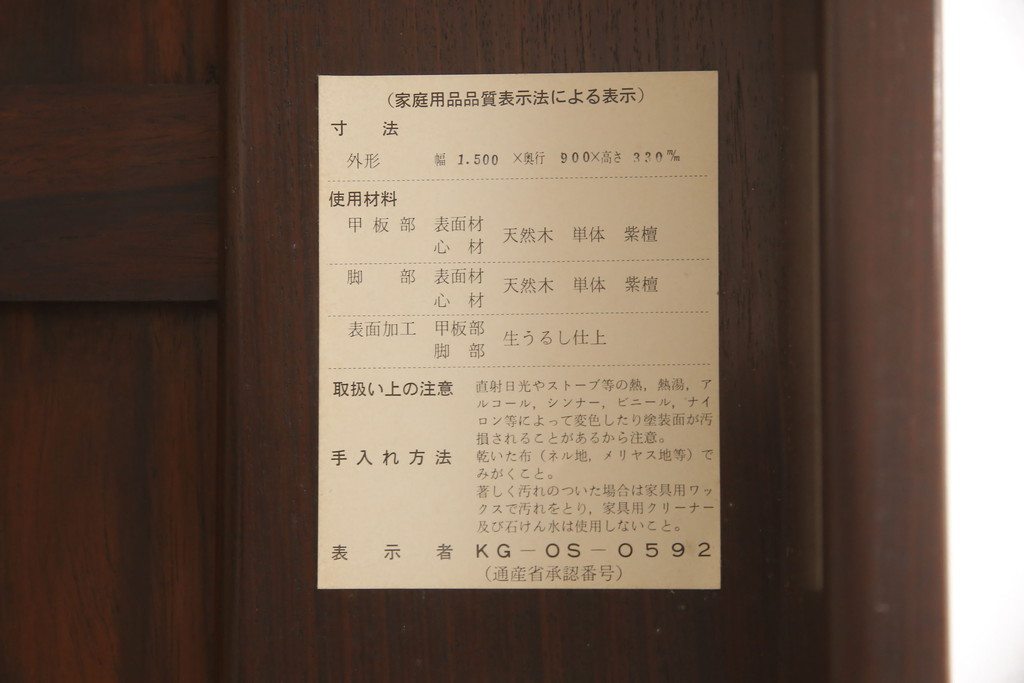 （家庭用品品質表示法による表示）
寸法
外形 幅 1.500 ×奥行 900×高さ 330 m/m
使用材料
甲板部 表面材 心材 天然木 単体 紫檀
脚部 表面材 心材 天然木 単体 紫檀
表面加工 甲板部 脚部 生うるし仕上
取扱い上の注意 直射日光やストーブ等の熱，熱湯，ア
ルコール，シンナー，ビニール，ナイ
ロン等によって変色したり塗装面が汚
損されることがあるから注意。
手入れ方法 乾いた布（ネル地，メリヤス地等）で
みがくこと。
著しく汚れのついた場合は家具用ワッ
クスで汚れをとり，家具用クリーナー
及び石けん水は使用しないこと。
表示者 KG－OS－0592
（通産省承認番号）